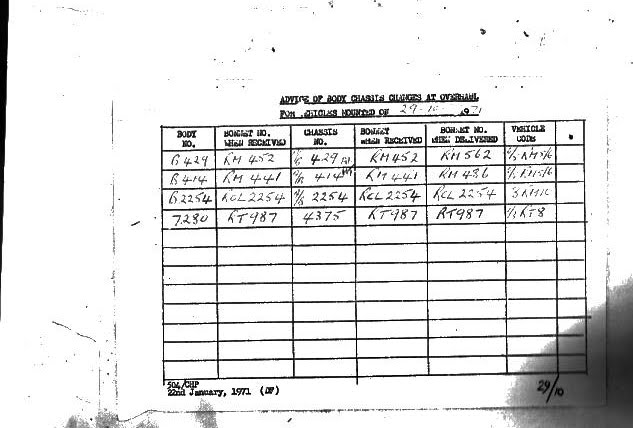 ADVICE OF BODY CHASSIS CHANGES AT OVERHAUL
FOR VEHICLES MOUNTED ON 29-10- 1971
BODY NO. BONNET NO. WHEN RECEIVED CHASSIS NO. BONNET WHEN RECEIVED BONNET NO. WHEN DELIVERED VEHICLE CODE
B429 RM 452 429 RM452 RM 562
B414 RM 441 414 RM441 RM 486
B2254 RCL2254 2254 RCL2254 RCL2254
7280 RT987 4375 RT987 RT987 RT8
504/CHP
22nd January, 1971 (DF) 29/10